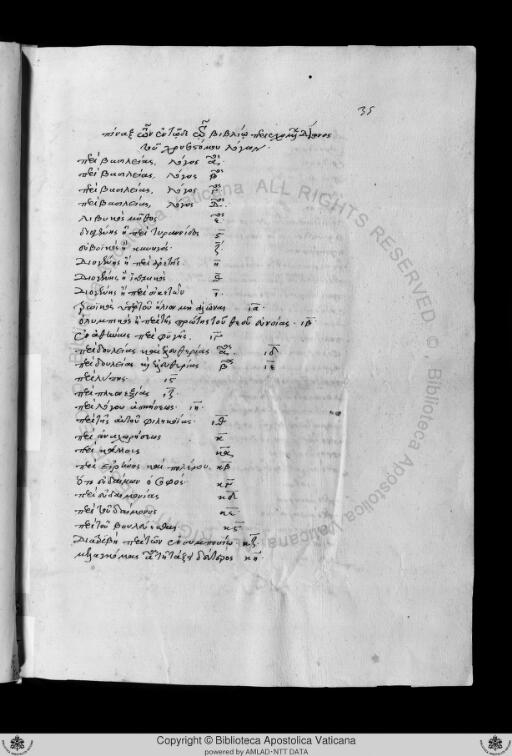 35
πίναξ τῶν ἐν τῷδε τῷ βιβλίῳ περιεχομένων Δίωνος
τοῦ χρυσοστόμου λόγων.
περὶ βασιλείας, λόγος α̅ος
περὶ βασιλείας, λόγος β̅ος
περὶ βασιλείας, λόγος γ̅ος
περὶ βασιλείας, λόγος δ̅ος
λιβυκὸς μῦθος ε̅ος
διογένης ἢ περὶ τυραννίδος ς̅
εὐβοϊκὸς ἢ κυνηγός ζ̅
Διογένης ἢ περὶ ἀρετῆς η̅
Διογένης ἢ ἰσθμικός θ̅
Διογένης ἢ περὶ οἰκετῶν ι̅
τρωϊκὸς ὑπὲρ τοῦ ἴλιον μὴ ἁλῶναι ια̅
ὀλυμπικὸς ἢ περὶ τῆς πρώτης τοῦ θεοῦ ἐννοίας. ιβ̅
ἐν ἀθήναις περὶ φυγῆς. ιγ̅
περὶ δουλείας καὶ ἐλευθερίας α̅ος. ιδ̅
περὶ δουλείας καὶ ἐλευθερίας β̅ος ιε̅
περὶ λύπης ις̅
περὶ πλεονεξίας ιζ̅
περὶ λόγου ἀσκήσεως ιη̅
περὶ τῆς αὑτοῦ φιληκοΐας ιθ̅
περὶ ἀναχωρήσεως κ̅
περὶ κάλλους κα̅
περὶ εἰρήνης καὶ πολέμου κβ̅
ὅτι εὐδαίμων ὁ σοφός κγ̅
περὶ εὐδαιμονίας κδ̅
περὶ τοῦ δαίμονος κε̅
περὶ τοῦ βουλεύεσθαι κς̅
Διατριβὴ περὶ τῶν ἐν συμποσίῳ κζ̅
μελαγκόμας α̅ τῇ τάξει δεύτερος κη̅
Copyright © Biblioteca Apostolica Vaticana
powered by AMLAD-NTT DATA
ALL RIGHTS RESERVED © Biblioteca Apostolica Vaticana